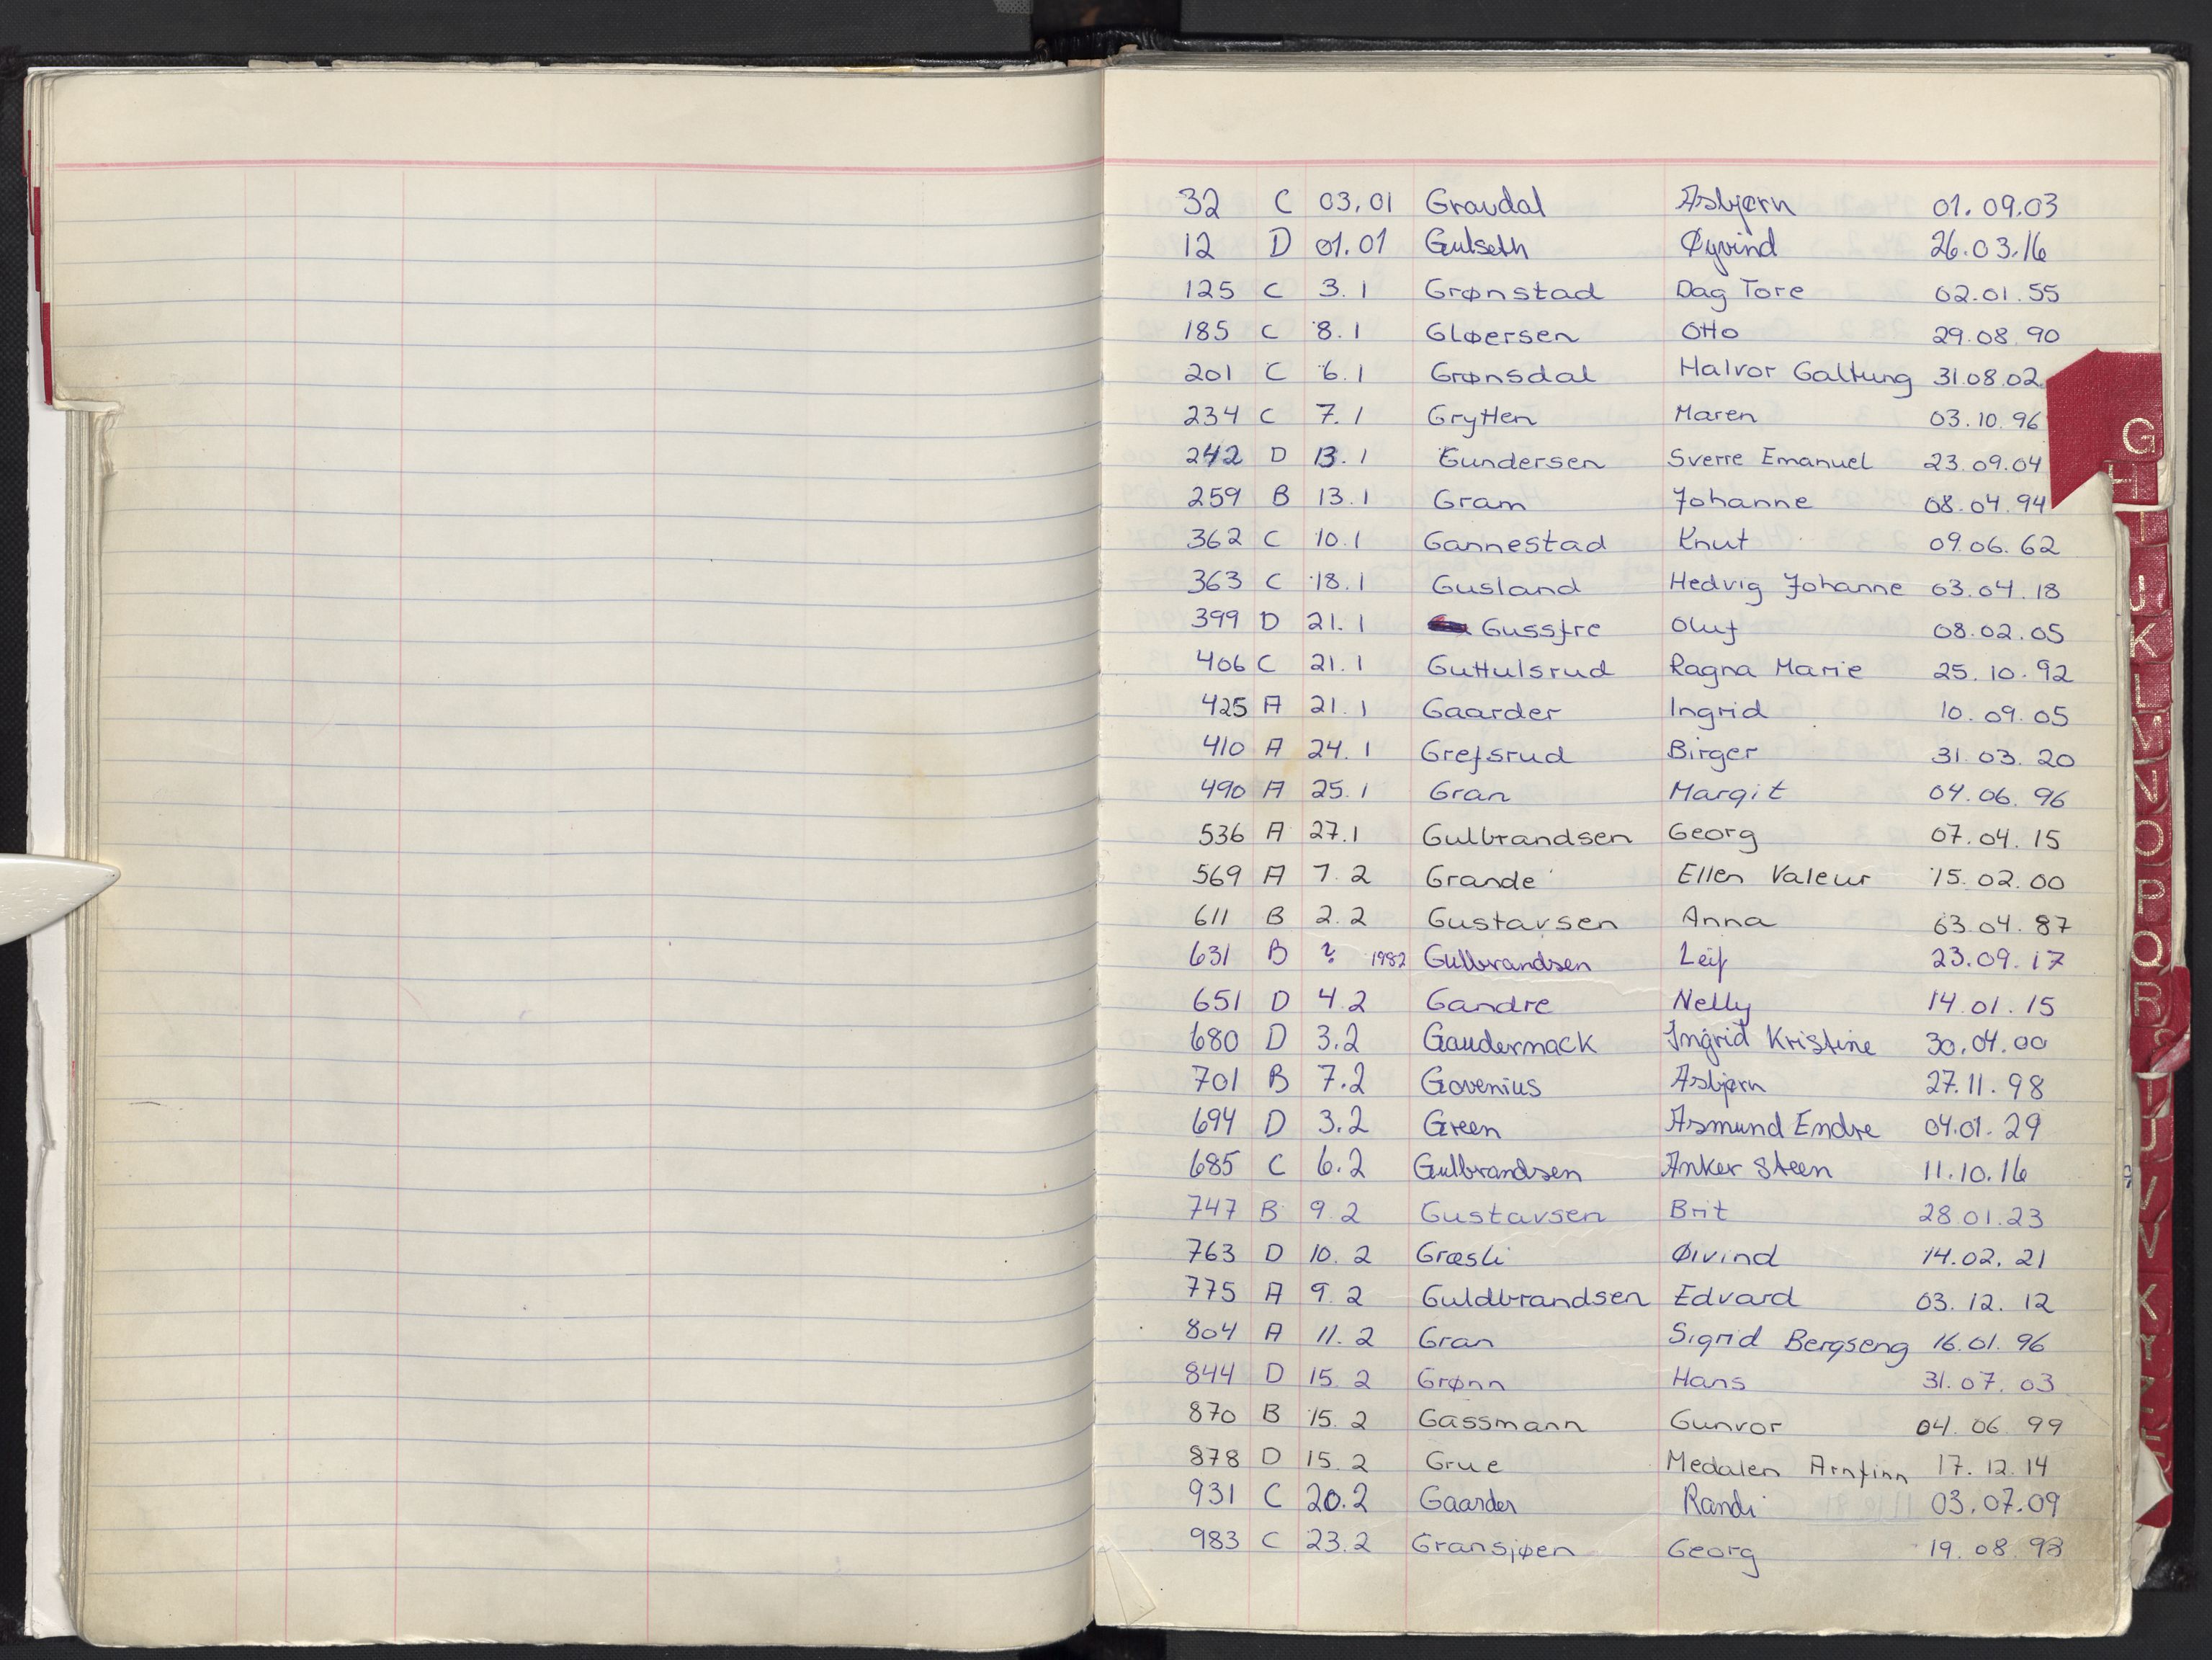 32 C 03.01 Gravdal Asbjørn 01.09.03
12 D 01.01 Gulseth Øyvind 26.03.16
125 C 3.1 Grønstad Dag Tore 02.01.55
185 C 8.1 Gløersen Otto 29.08.90
201 C 6.1 Grønsdal Halvor Galtung 31.08.02
234 C 7.1 Grytten Maren 03.10.96
242 D 13.1 Gundersen Sverre Emanuel 23.09.04
259 B 13.1 Gram Johanne 08.04.94
362 C 10.1 Gannestad Knut 09.06.62
363 C 18.1 Gusland Hedvig Johanne 03.04.18
399 D 21.1 Gussfre Oluf 08.02.05
406 C 21.1 Guttulsrud Ragna Marie 25.10.92
425 A 21.1 Gaarder Ingrid 10.09.05
410 A 24.1 Grefsrud Birger 31.03.20
490 A 25.1 Gran Margit 04.06.96
536 A 27.1 Gulbrandsen Georg 07.04.15
569 A 1.2 Grande Ellen Valeur 15.02.00
611 B 2.2 Gustavsen Anna 03.04.87
631 B ? 1982 Gulbrandsen Leif 23.09.17
651 D 4.2 Gandre Nelly 14.01.15
680 D 3.2 Gaudernack Ingrid Kristine 30.04.00
701 B 7.2 Govenius Asbjørn 27.11.98
694 D 3.2 Green Asmund Endre 04.01.29
685 C 6.2 Gulbrandsen Anker Steen 11.10.16
747 B 9.2 Gustavsen Brit 28.01.23
763 D 10.2 Græsli Øivind 14.02.21
775 A 9.2 Guldbrandsen Edvard 03.12.12
804 A 11.2 Gran Sigrid Bergseng 16.01.96
844 D 15.2 Grønn Hans 31.07.03
870 B 15.2 Gassmann Gunvor 04.06.99
878 D 15.2 Grue Medalen Arnfinn 17.12.14
931 C 20.2 Gaarder Randi 03.07.09
983 C 23.2 Gransjøen Georg 19.08.93
G
H
I
J
K
L
M
N
O
P
Q
R